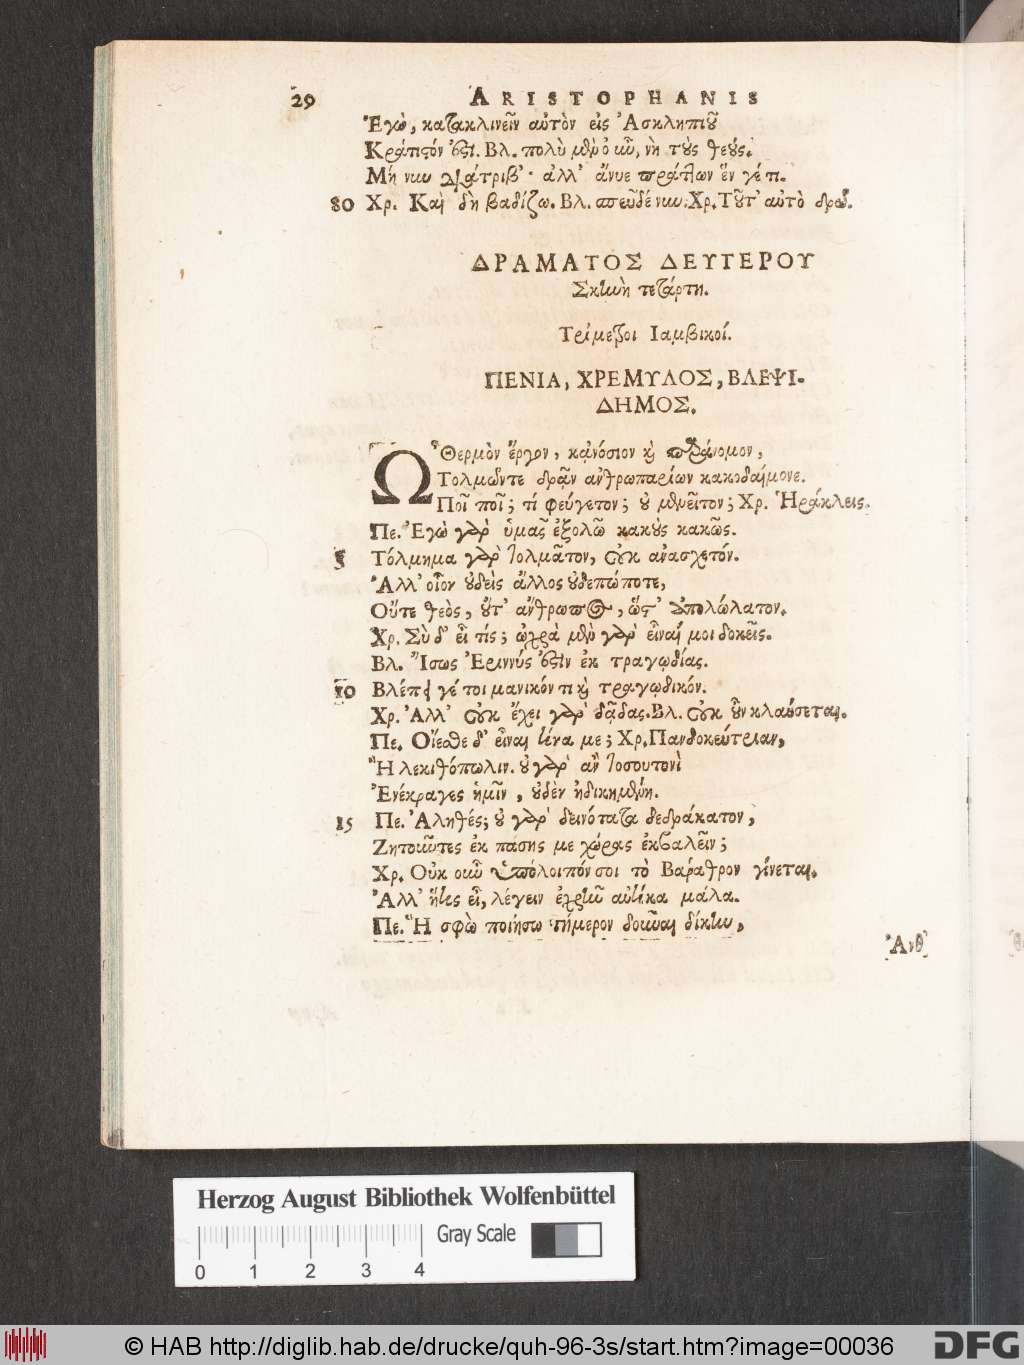 29 ARISTOPHANIS
Ἐγὼ, κατακλινεῖν αὐτὸν εἰς Ἀσκληπιοῦ
Κράτιστόν ἐστι. Βλ. πολὺ μὲν οὖν, νὴ τοὺς θεούς.
Μή νυν διάτριβ'· ἀλλ' ἄνυε πράττων ἕν γέ τι.
80 Χρ. Καὶ δὴ βαδίζω. Βλ. σπεῦδέ νυν. Χρ. Τοῦτ' αὐτὸ δρῶ.
ΔΡΑΜΑΤΟΣ ΔΕΥΤΕΡΟΥ
Σκηνὴ τετάρτη.
Τρίμετροι Ιαμβικοί.
ΠΕΝΙΑ, ΧΡΕΜΥΛΟΣ, ΒΛΕΨΙ-
ΔΗΜΟΣ.
Ὦ Θερμὸν ἔργον, κἀνόσιον καὶ παράνομον,
Τολμῶντε δρᾷν ἀνθρωπαρίων κακοδαίμονε.
Ποῖ ποῖ; τί φεύγετον; οὐ μενεῖτον; Χρ. Ἡράκλεις.
Πε. Ἐγὼ γὰρ ὑμᾶς ἐξολῶ κακοὺς κακῶς.
5 Τόλμημα γὰρ τολμᾶτον, οὐκ ἀνασχετόν.
Ἀλλ' οἷον οὐδεὶς ἄλλος οὐδεπώποτε,
Οὔτε θεὸς, οὔτ' ἄνθρωπος, ὥστ' ἀπολώλατον.
Χρ. Σὺ δ' εἶ τίς; ὠχρὰ μὲν γὰρ εἶναί μοι δοκεῖς.
Βλ. Ἴσως Ἐριννύς ἐστιν ἐκ τραγῳδίας.
10 Βλέπει γέ τοι μανικόν τι καὶ τραγῳδικόν.
Χρ. Ἀλλ' οὐκ ἔχει γὰρ δᾷδας. Βλ. οὐκ οὖν κλαύσεται.
Πε. Οἴεσθε δ' εἶναι τίνα με; Χρ. Πανδοκεύτριαν,
Ἢ λεκιθόπωλιν. οὐ γὰρ ἂν τοσουτονὶ
Ἐνέκραγες ἡμῖν, οὐδὲν ἠδικημένη.
15 Πε. Ἀληθές; οὐ γὰρ δεινότατα δεδράκατον,
Ζητοῦντες ἐκ πάσης με χώρας ἐκβαλεῖν;
Χρ. Οὐκ οὖν ὑπόλοιπόν σοι τὸ Βάραθρον γίνεται.
Ἀλλ' ἥτις εἶ, λέγειν ἐχρῆν αὐτίκα μάλα.
Πε. Ἢ σφὼ ποιήσω τήμερον δοῦναι δίκην,
Ἀνθ'
Herzog August Bibliothek Wolfenbüttel
Gray Scale
0 1 2 3 4
© HAB http://diglib.hab.de/drucke/quh-96-3s/start.htm?image=00036 DFG